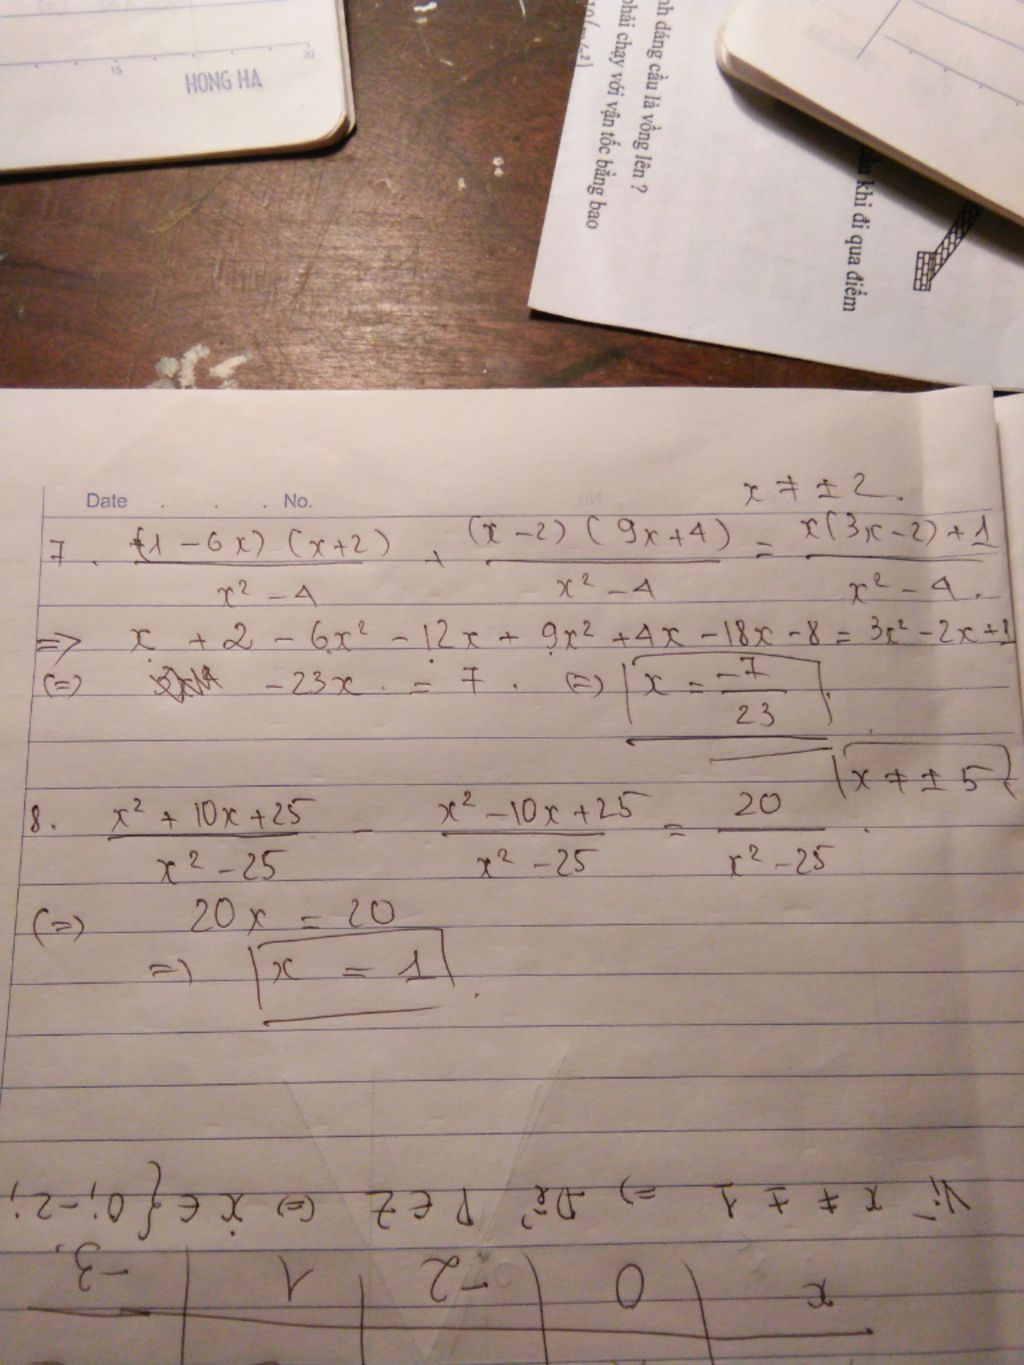 15 20
HONG HA
nh dáng cầu là vồng lên ?
phải chạy với vận tốc bằng bao
ầu khi đi qua điểm
Date . . . No.
x ≠ ± 2.
7. (1 – 6x) (x+2) / x² – 4 + (x – 2) ( 9x+4) / x² – 4 = x(3x – 2) + 1 / x² – 4.
=> x + 2 – 6x² – 12x + 9x² + 4x – 18x – 8 = 3x² – 2x + 1
(=) – 23x = 7. (=) x = –7 / 23
x ≠ ± 5
8. x² + 10x + 25 / x² – 25 – x² – 10x + 25 / x² – 25 = 20 / x² – 25.
(=) 20x = 20
=) x = 1.
Vì x ≠ ± 1 =) Để P ∈ Z (=) x ∈ { 0; –2;
–3.
x 0 –2 1